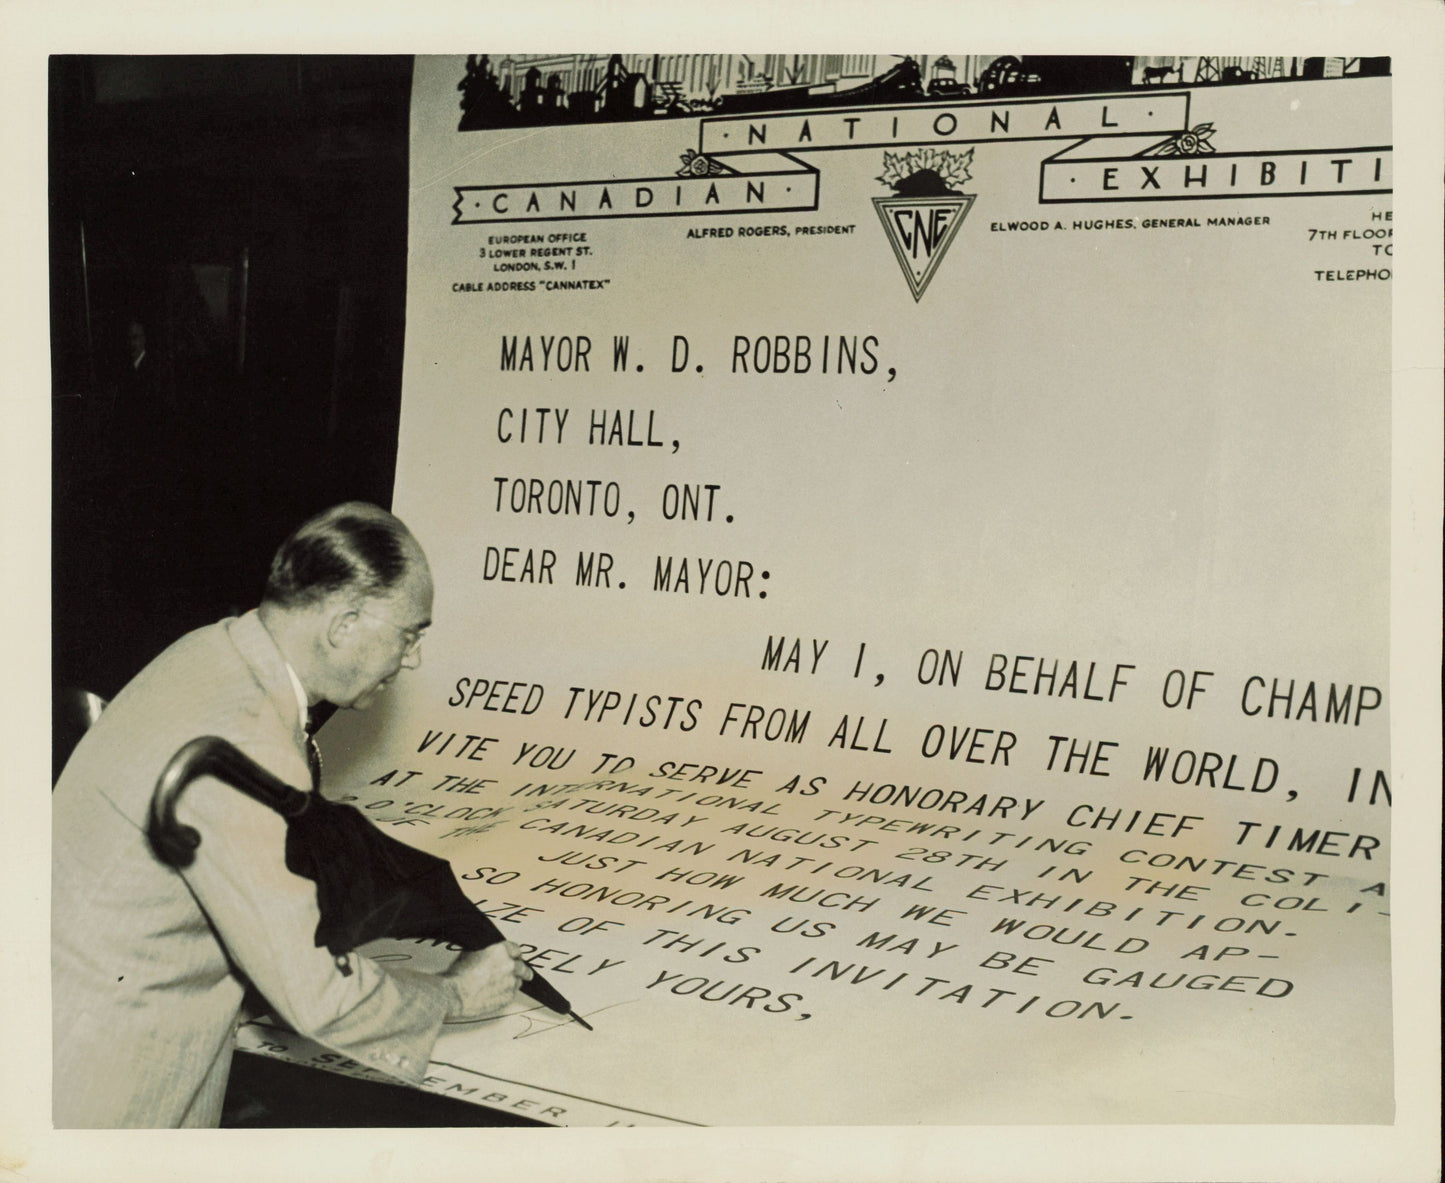 · NATIONAL ·
· CANADIAN ·
· EXHIBITI
CNE
EUROPEAN OFFICE
3 LOWER REGENT ST.
LONDON, S.W. 1
CABLE ADDRESS "CANNATEX"
ALFRED ROGERS, PRESIDENT
ELWOOD A. HUGHES, GENERAL MANAGER
HE
7TH FLOOR
TO
TELEPHO
MAYOR W. D. ROBBINS,
CITY HALL,
TORONTO, ONT.
DEAR MR. MAYOR:
MAY I, ON BEHALF OF CHAMP
SPEED TYPISTS FROM ALL OVER THE WORLD, IN
VITE YOU TO SERVE AS HONORARY CHIEF TIMER
AT THE INTERNATIONAL TYPEWRITING CONTEST A
O'CLOCK SATURDAY AUGUST 28TH IN THE COLI-
OF THE CANADIAN NATIONAL EXHIBITION.
JUST HOW MUCH WE WOULD AP-
SO HONORING US MAY BE GAUGED
IZE OF THIS INVITATION.
RELY YOURS,
TO SEPTEMBER 11